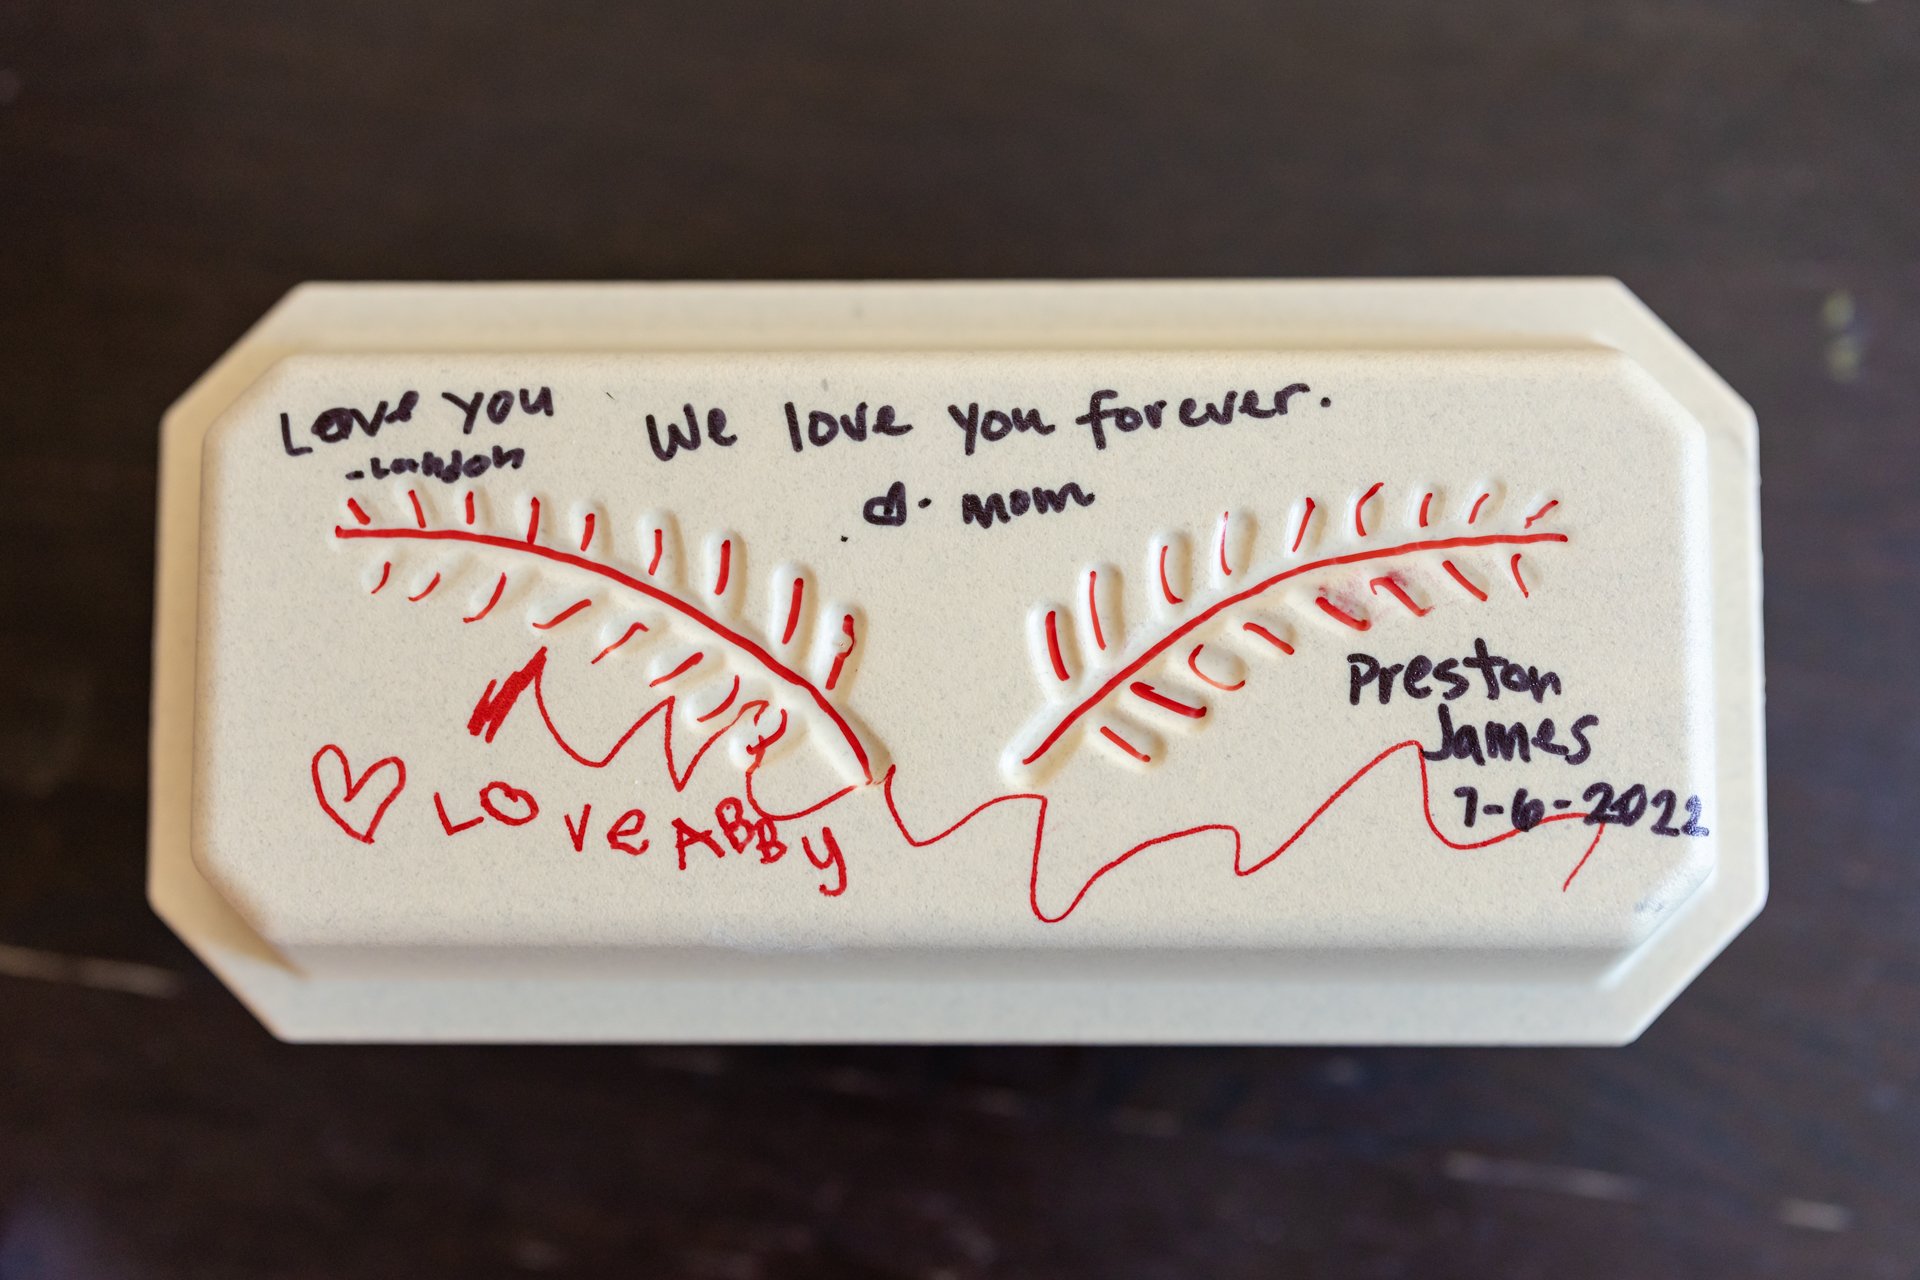 Love you
-Landon
We love you forever.
♡. mom
Preston
James
7-6-2022
♡ LOVE ABBY